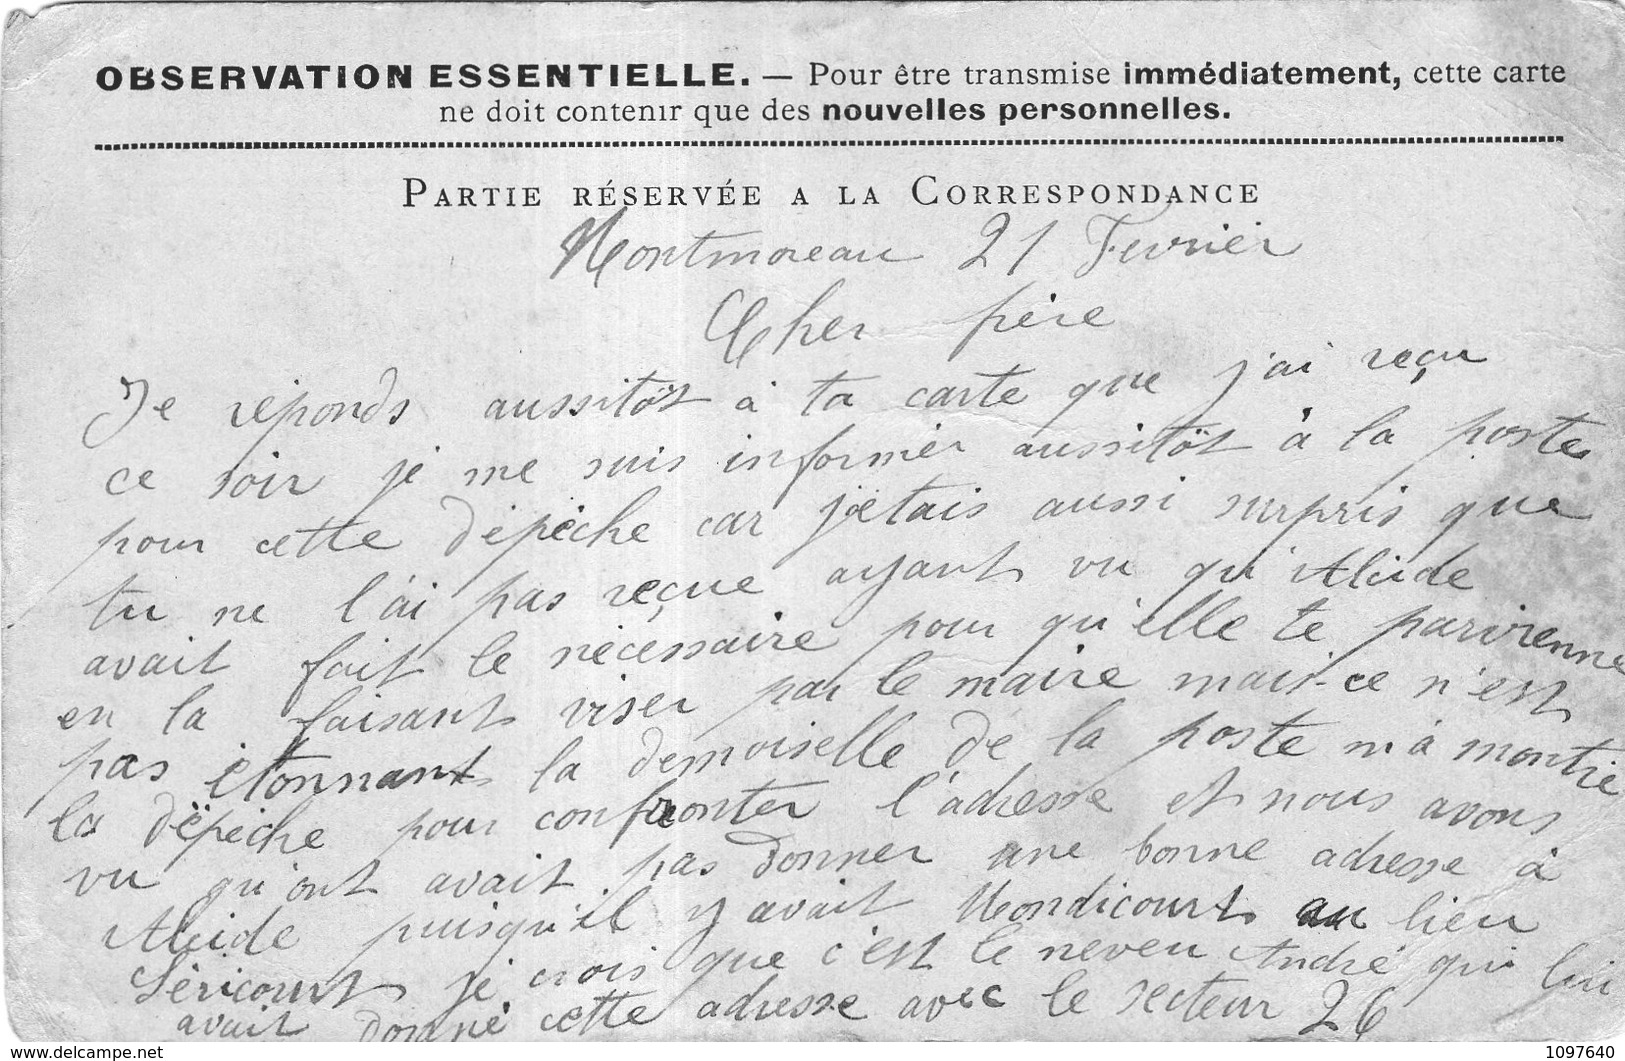 OBSERVATION ESSENTIELLE. — Pour être transmise immédiatement, cette carte
ne doit contenir que des nouvelles personnelles.
PARTIE RÉSERVÉE A LA CORRESPONDANCE
Montmoreau 21 Fevrier
Cher frère
Je réponds aussitôt à ta carte que j'ai reçu
ce soir je me suis informer aussitôt à la poste
pour cette dépêche car j'étais aussi surpris que
tu ne l'ai pas reçue ayant vu qu'Alcide
avait fait le nécessaire pour qu'elle te parvienne
en la faisant viser par le maire mais ce n'est
pas étonnant la demoiselle de la poste m'a montré
la dépêche pour confronter l'adresse et nous avons
vu qu'ont avait pas donner une bonne adresse à
Alcide puisqu'il y avait Mondicourt au lieu
Séricourt je crois que c'est le neveu André qui lui
avait donné cette adresse avec le secteur 26
www.delcampe.net
1097640